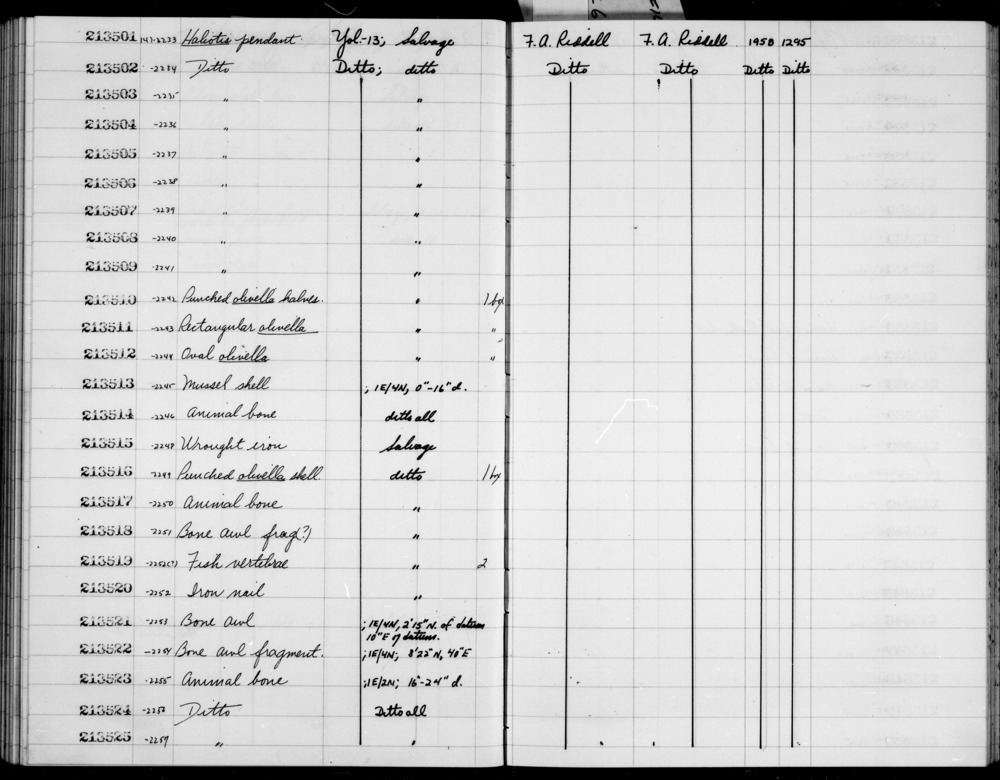 213501 147-2233 Haliotis pendant Yol.-13; Salvage F. A. Riddell F. A. Riddell 1958 1295
213502 -2234 Ditto Ditto; ditto Ditto Ditto Ditto Ditto
213503 -2235 " "
213504 -2236 " "
213505 -2237 " "
213506 -2238 " "
213507 -2239 " "
213508 -2240 " "
213509 -2241 " "
213510 -2242 Punched olivella halves. " 1 box
213511 -2243 Rectangular olivella " "
213512 -2244 Oval olivella " "
213513 -2245 Mussel shell ; 1E/4N, 0"-16" d.
213514 -2246 Animal bone ditto all
213515 -2248 Wrought iron Salvage
213516 -2249 Punched olivella shell. ditto 1 box
213517 -2250 Animal bone "
213518 -2251 Bone awl frag(?) "
213519 -2252(?) Fish vertebrae " 2
213520 -2252 Iron nail "
213521 -2253 Bone awl ; 1E/4N, 2'15"N. of datum
10"E of datum.
213522 -2254 Bone awl fragment. ; 1E/4N; 8'22"N, 40"E
213523 -2255 Animal bone ; 1E/2N; 16"-24" d.
213524 Ditto Ditto all
213525 -2259 " "